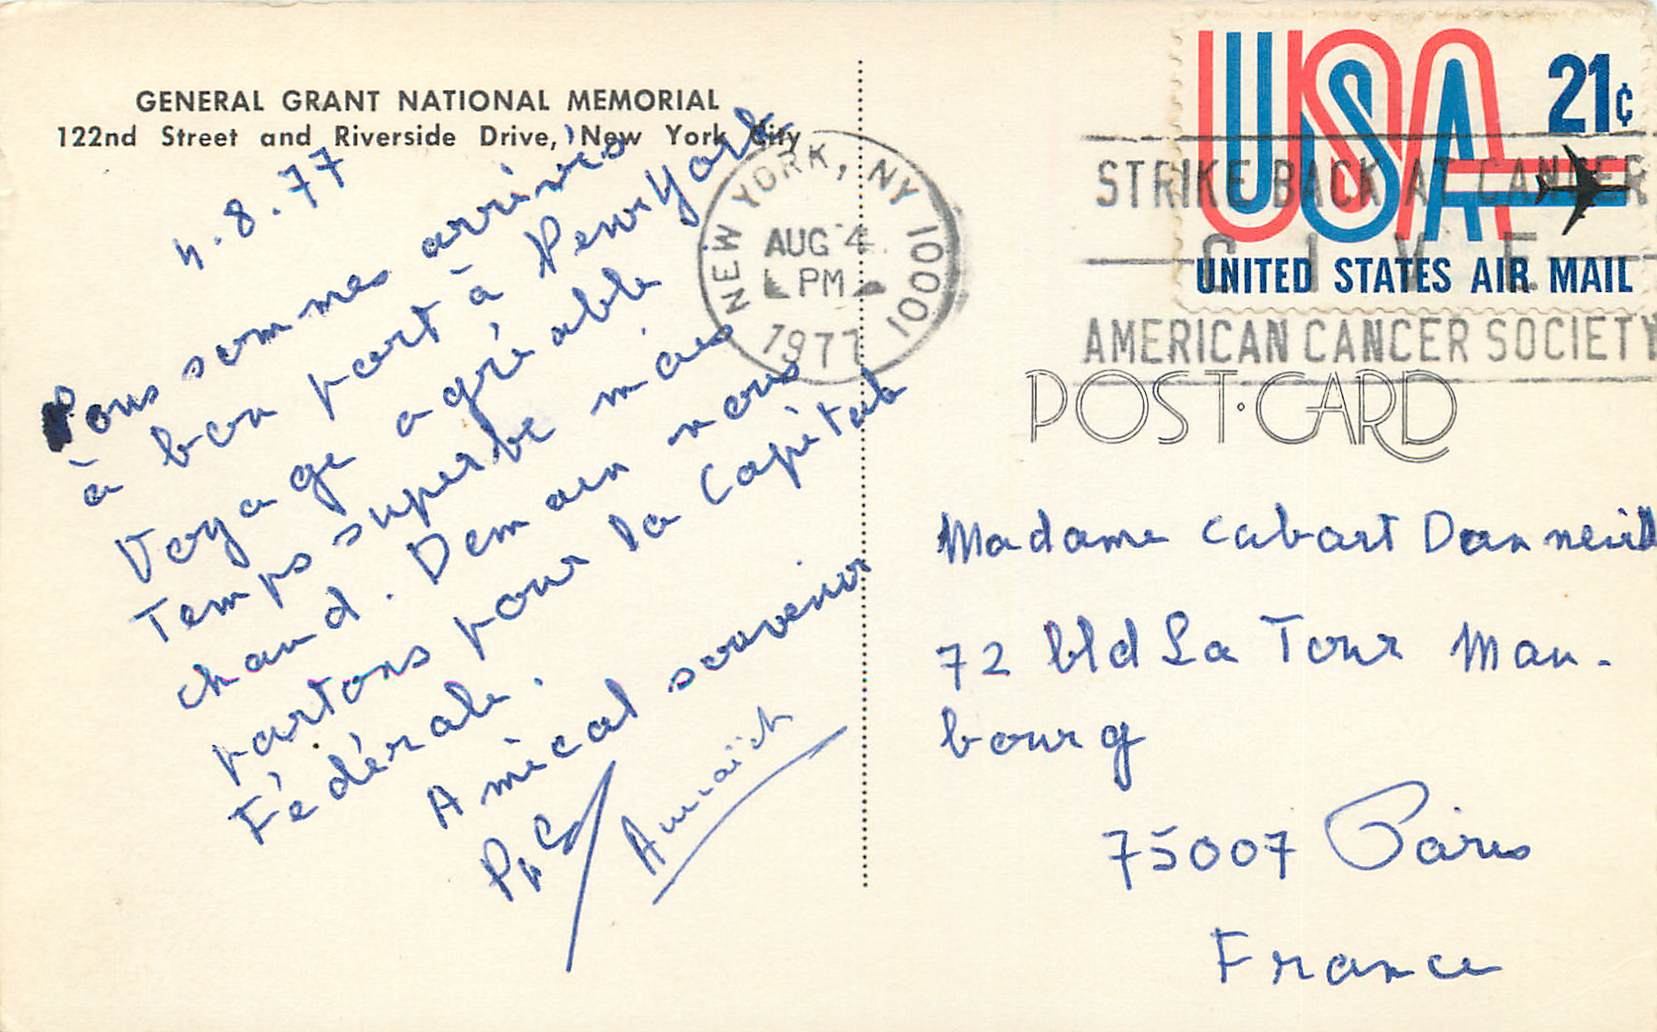 GENERAL GRANT NATIONAL MEMORIAL
122nd Street and Riverside Drive, New York City
4.8.77
Nous sommes arrivés
à bon port à New York
Voyage agréable
Temps superbe mais
chaud. Demain nous
partons pour la Capitale
Fédérale.
Amical souvenir
NEW YORK, NY 10001
AUG 4
PM
1977
STRIKE BACK AT CANCER
GIVE
AMERICAN CANCER SOCIETY
USA 21¢
UNITED STATES AIR MAIL
POST·CARD
Madame Cabart Danneville
72 bld La Tour Mau-
bourg
75007 Paris
France